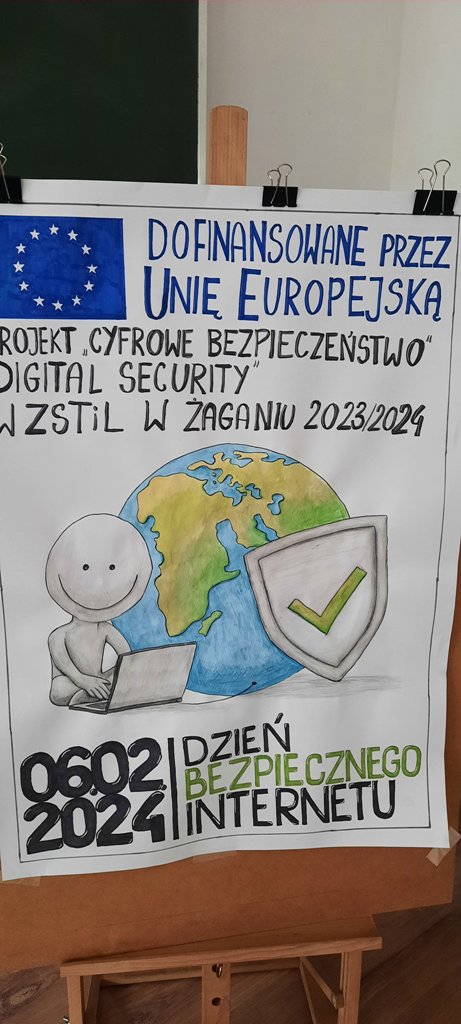 DOFINANSOWANE PRZEZ
UNIĘ EUROPEJSKĄ
ROJEKT „CYFROWE BEZPIECZEŃSTWO"
DIGITAL SECURITY"
W ZSTiL W ŻAGANIU 2023/2024
06.02.
2024
DZIEŃ
BEZPIECZNEGO
INTERNETU